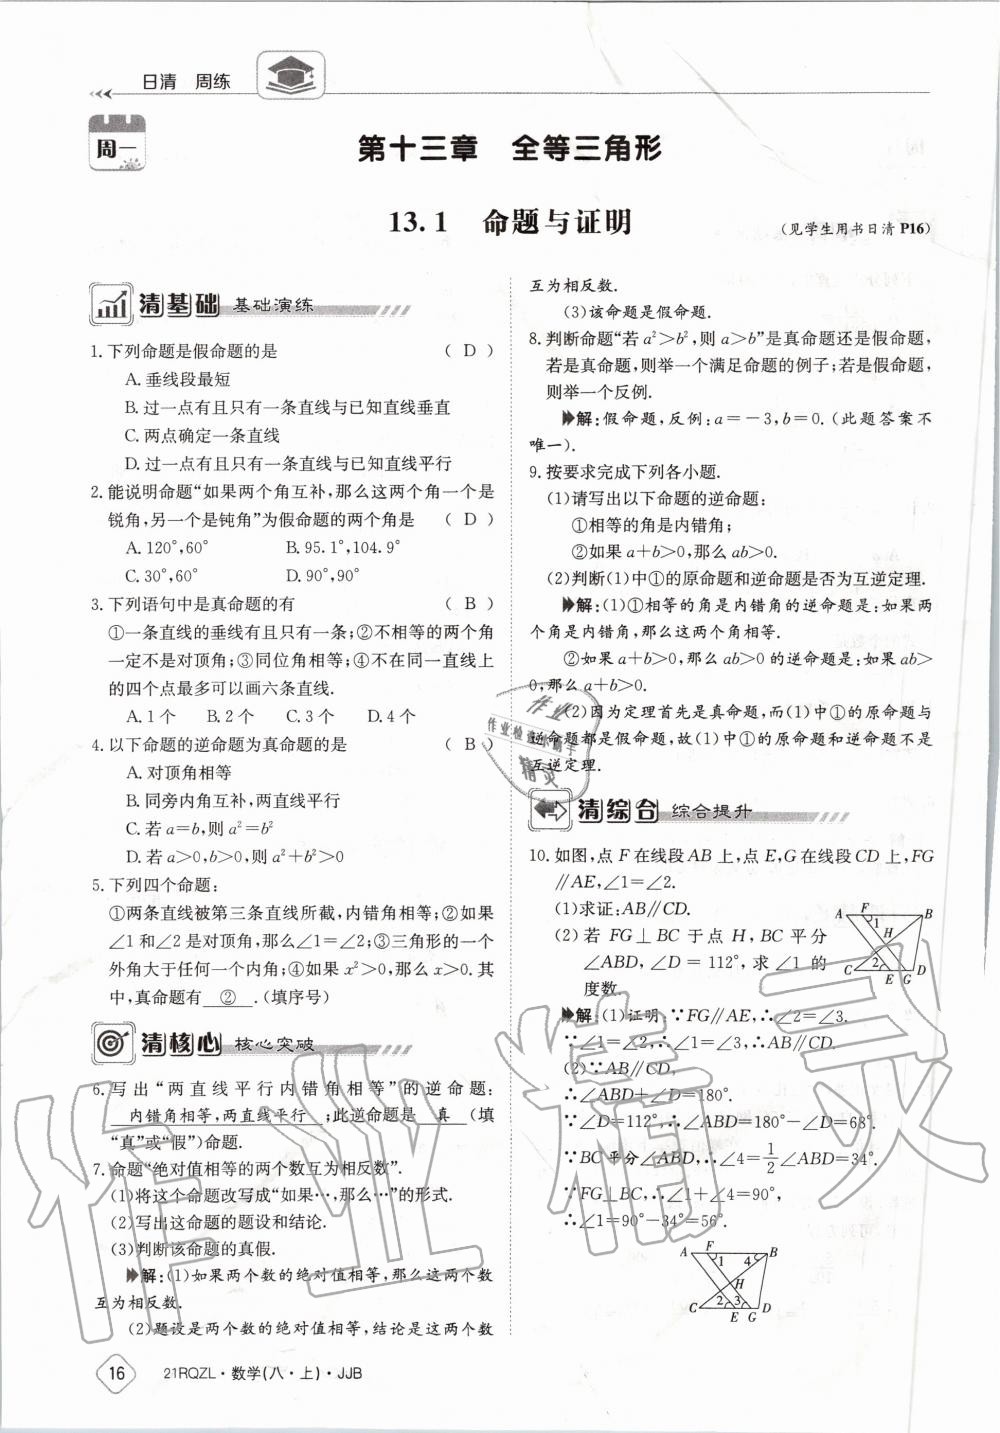 日清 周练
周一
第十三章 全等三角形
13.1 命题与证明
(见学生用书日清 P16)
清基础 基础演练
1.下列命题是假命题的是 ( D )
A.垂线段最短
B.过一点有且只有一条直线与已知直线垂直
C.两点确定一条直线
D.过一点有且只有一条直线与已知直线平行
2.能说明命题“如果两个角互补,那么这两个角一个是
锐角,另一个是钝角”为假命题的两个角是 ( D )
A.120°,60° B.95.1°,104.9°
C.30°,60° D.90°,90°
3.下列语句中是真命题的有 ( B )
①一条直线的垂线有且只有一条;②不相等的两个角
一定不是对顶角;③同位角相等;④不在同一直线上
的四个点最多可以画六条直线.
A.1个 B.2个 C.3个 D.4个
4.以下命题的逆命题为真命题的是 ( B )
A.对顶角相等
B.同旁内角互补,两直线平行
C.若a=b,则a²=b²
D.若a>0,b>0,则a²+b²>0
5.下列四个命题:
①两条直线被第三条直线所截,内错角相等;②如果
∠1和∠2是对顶角,那么∠1=∠2;③三角形的一个
外角大于任何一个内角;④如果x²>0,那么x>0.其
中,真命题有 ② .(填序号)
清核心 核心突破
6.写出“两直线平行内错角相等”的逆命题:
内错角相等,两直线平行 ;此逆命题是 真 (填
“真”或“假”)命题.
7.命题“绝对值相等的两个数互为相反数”.
(1)将这个命题改写成“如果…,那么…”的形式.
(2)写出这个命题的题设和结论.
(3)判断该命题的真假.
解:(1)如果两个数的绝对值相等,那么这两个数
互为相反数.
(2)题设是两个数的绝对值相等,结论是这两个数
互为相反数.
(3)该命题是假命题.
8.判断命题“若a²>b²,则a>b”是真命题还是假命题,
若是真命题,则举一个满足命题的例子;若是假命题,
则举一个反例.
解:假命题,反例:a=-3,b=0.(此题答案不
唯一).
9.按要求完成下列各小题.
(1)请写出以下命题的逆命题:
①相等的角是内错角;
②如果a+b>0,那么ab>0.
(2)判断(1)中①的原命题和逆命题是否为互逆定理.
解:(1)①相等的角是内错角的逆命题是:如果两
个角是内错角,那么这两个角相等.
②如果a+b>0,那么ab>0的逆命题是:如果ab>
0,那么a+b>0.
(2)因为定理首先是真命题,而(1)中①的原命题与
逆命题都是假命题,故(1)中①的原命题和逆命题不是
互逆定理.
清综合 综合提升
10.如图,点F在线段AB上,点E,G在线段CD上,FG
∥AE,∠1=∠2.
(1)求证:AB∥CD.
(2)若FG⊥BC于点H,BC平分
∠ABD,∠D=112°,求∠1的
度数.
A F B
1
H
2
C E G D
解:(1)证明:∵FG∥AE,∴∠2=∠3.
∵∠1=∠2,∴∠1=∠3,∴AB∥CD.
(2)∵AB∥CD,
∴∠ABD+∠D=180°.
∵∠D=112°,∴∠ABD=180°-∠D=68°.
∵BC平分∠ABD,∴∠4=1/2∠ABD=34°.
∵FG⊥BC,∴∠1+∠4=90°,
∴∠1=90°-34°=56°.
A F B
1 4
H
2 3
C E G D
16 21RQZL·数学(八·上)·JJB
作业精灵